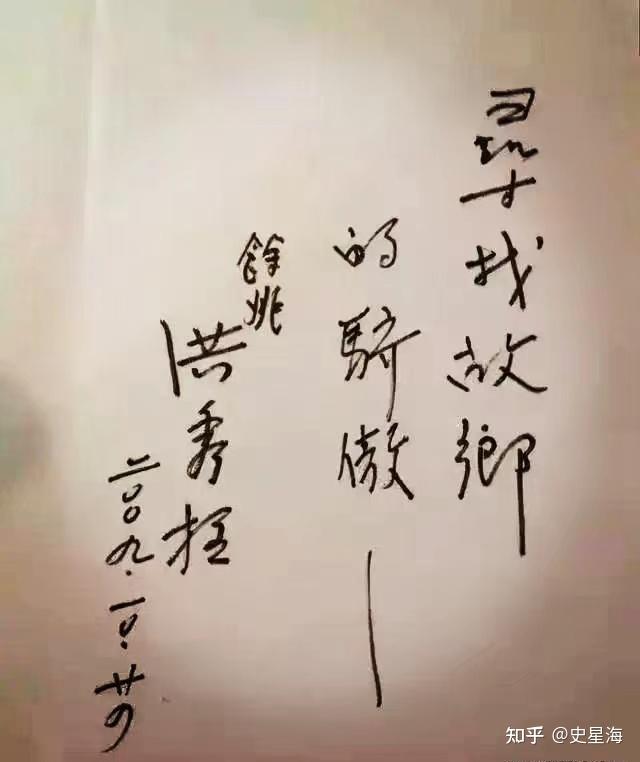 尋找故鄉
的驕傲—
餘姚
洪秀柱
二〇〇九.一〇.廿四
知乎 @史星海